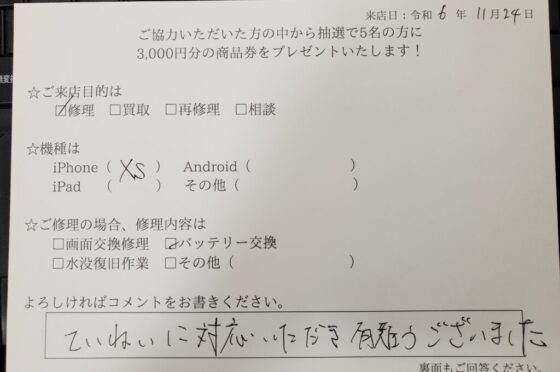 来店日：令和 6 年 11月24日
ご協力いただいた方の中から抽選で5名の方に
3,000円分の商品券をプレゼントいたします！
☆ご来店目的は
☑修理 □買取 □再修理 □相談
☆機種は
iPhone（ XS ） Android（ ）
iPad （ ） その他（ ）
☆ご修理の場合、修理内容は
□画面交換修理 ☑バッテリー交換
□水没復旧作業 □その他（ ）
よろしければコメントをお書きください。
ていねいに対応いただき有難うございました
裏面もご回答ください。